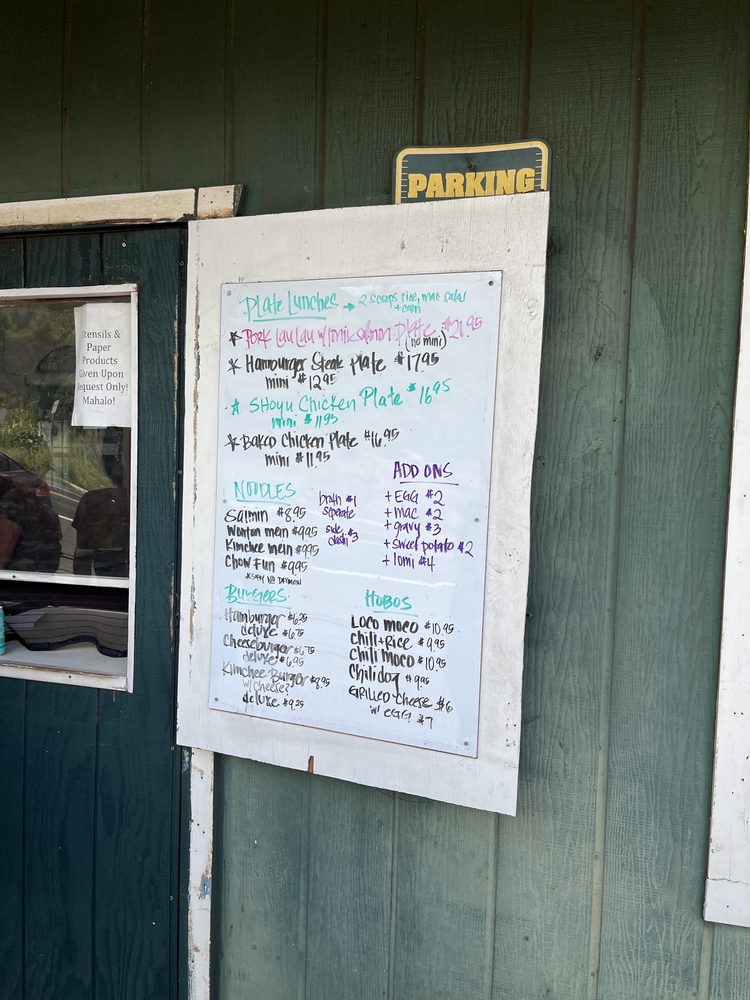 PARKING
Utensils &
Paper
Products
Given Upon
Request Only!
Mahalo!
Plate Lunches → 2 scoops rice, mac salad
+ corn
* Pork Lau Lau w/lomi salmon Plate $21.95
(no mini)
* Hamburger Steak Plate $17.95
mini $12.95
* Shoyu Chicken Plate $16.95
mini $11.95
* Baked Chicken Plate $16.95
mini $11.95
NOODLES
Saimin $8.95
Wonton mein $9.95
Kimchee mein $9.95
Chow Fun $9.95
broth $1
seperate
side $3
dashi
ADD ONS
+ EGG $2
+ mac $2
+ gravy $3
+ sweet potato $2
+ lomi $4
BURGERS
Hamburger $6.25
deluxe $6.75
Cheeseburger $6.75
deluxe $6.95
Kimchee Burger $8.95
w/ cheese?
deluxe $9.25
HOBOS
Loco moco $10.95
Chili + Rice $9.95
Chili moco $10.95
Chilidog $9.95
GRILLED Cheese $6
w/ EGG $7